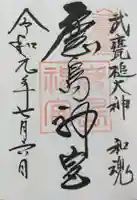 武甕槌大神 和魂
鹿島神宮
令和元年十一月六日